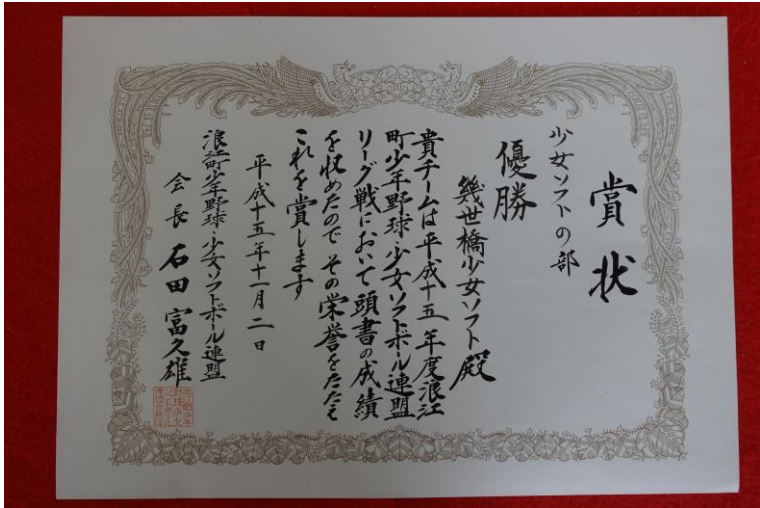 賞状
少女ソフトの部
優勝
幾世橋少女ソフト殿
貴チームは平成十五年度浪江
町少年野球・少女ソフトボール連盟
リーグ戦において頭書の成績
を収めたので その栄誉をたたえ
これを賞します
平成十五年十一月二日
浪江町少年野球・少女ソフトボール連盟
会長 石田富久雄